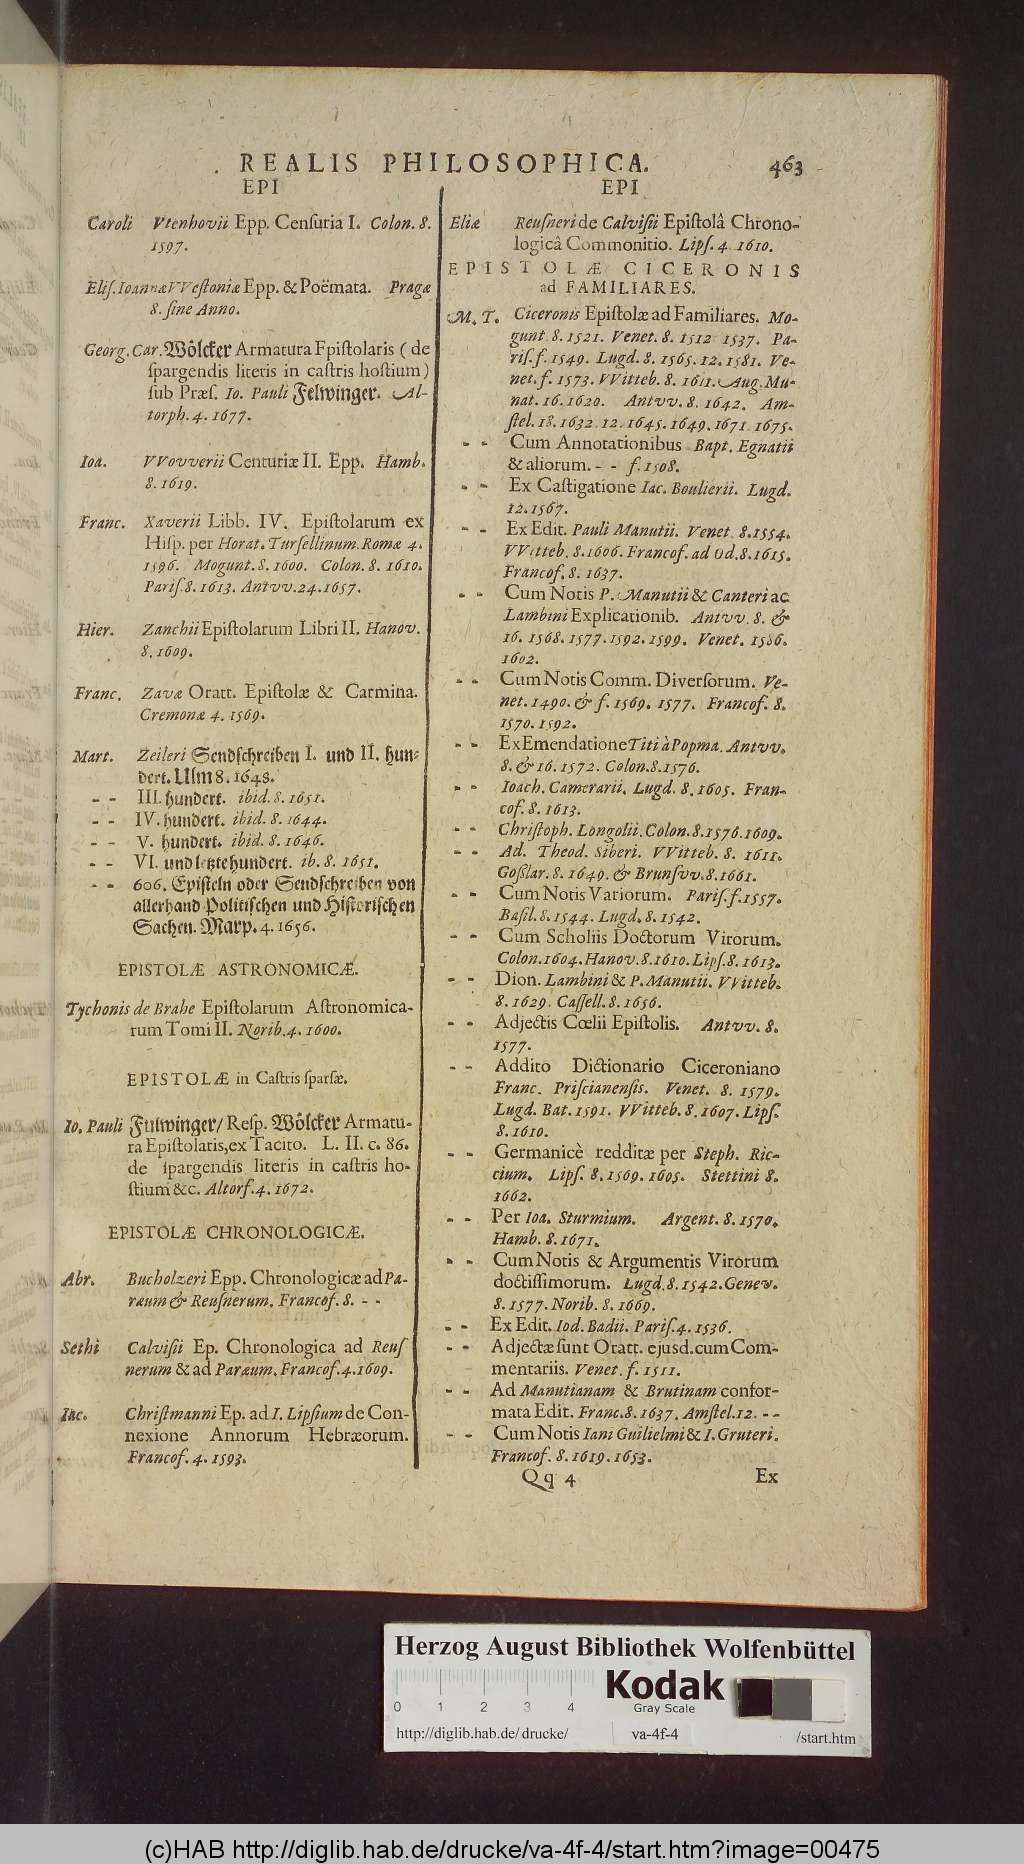 REALIS PHILOSOPHICA. 463
EPI
Caroli Vtenhovii Epp. Censuria I. Colon. 8.
1597.
Elis. Ioannæ VVestoniæ Epp. & Poëmata. Pragæ
8. sine Anno.
Georg. Car. Wölcker Armatura Epistolaris (de
spargendis literis in castris hostium)
sub Præs. Io. Pauli Felwinger. Al-
torph. 4. 1677.
Ioa. VVovverii Centuriæ II. Epp. Hamb.
8. 1619.
Franc. Xaverii Libb. IV. Epistolarum ex
Hisp. per Horat. Tursellinum. Romæ 4.
1596. Mogunt. 8. 1600. Colon. 8. 1610.
Paris. 8. 1613. Antvv. 24. 1657.
Hier. Zanchii Epistolarum Libri II. Hanov.
8. 1609.
Franc. Zavæ Oratt. Epistolæ & Carmina.
Cremonæ 4. 1569.
Mart. Zeileri Sendschreiben I. und II. hun-
dert. Ulm 8. 1648.
- - III. hundert. ibid. 8. 1651.
- - IV. hundert. ibid. 8. 1644.
- - V. hundert. ibid. 8. 1646.
- - VI. und letzte hundert. ib. 8. 1651.
- - 606. Episteln oder Sendschreiben von
allerhand Politischen und Historischen
Sachen. Marp. 4. 1656.
EPISTOLÆ ASTRONOMICÆ.
Tychonis de Brahe Epistolarum Astronomica-
rum Tomi II. Norib. 4. 1600.
EPISTOLÆ in Castris sparsæ.
Io. Pauli Fulwinger/ Resp. Wölcker Armatu-
ra Epistolaris, ex Tacito. L. II. c. 86.
de spargendis literis in castris ho-
stium &c. Altorf. 4. 1672.
EPISTOLÆ CHRONOLOGICÆ.
Abr. Bucholzeri Epp. Chronologicæ ad Pa-
ræum & Reusnerum. Francof. 8. - -
Sethi Calvisii Ep. Chronologica ad Reus
nerum & ad Paræum. Francof. 4. 1609.
Iac. Christmanni Ep. ad I. Lipsium de Con-
nexione Annorum Hebræorum.
Francof. 4. 1593.
EPI
Eliæ Reusneri de Calvisii Epistolâ Chrono-
logicâ Commonitio. Lips. 4. 1610.
EPISTOLÆ CICERONIS
ad FAMILIARES.
M. T. Ciceronis Epistolæ ad Familiares. Mo-
gunt. 8. 1521. Venet. 8. 1512 1537. Pa-
ris. f. 1549. Lugd. 8. 1565. 12. 1581. Ve-
net. f. 1573. VVitteb. 8. 1611. Aug. Mu-
nat. 16. 1620. Antvv. 8. 1642. Am-
stel. 18. 1632. 12. 1645. 1649. 1671. 1675.
- - Cum Annotationibus Bapt. Egnatii
& aliorum. - - f. 1508.
- - Ex Castigatione Iac. Boulierii. Lugd.
12. 1567.
- - Ex Edit. Pauli Manutii. Venet. 8. 1554.
VVitteb. 8. 1606. Francof. ad Od. 8. 1615.
Francof. 8. 1637.
- - Cum Notis P. Manutii & Canteri ac
Lambini Explicationib. Antvv. 8. &
16. 1568. 1577. 1592. 1599. Venet. 1586.
1602.
- - Cum Notis Comm. Diversorum. Ve-
net. 1490. & f. 1569. 1577. Francof. 8.
1570. 1592.
- - Ex Emendatione Titi à Popma. Antvv.
8. & 16. 1572. Colon. 8. 1576.
- - Ioach. Camerarii. Lugd. 8. 1605. Fran-
cof. 8. 1613.
- - Christoph. Longolii. Colon. 8. 1576. 1609.
- - Ad. Theod. Siberi. VVitteb. 8. 1611.
Goslar. 8. 1649. & Brunsvv. 8. 1661.
- - Cum Notis Variorum. Paris. f. 1557.
Basil. 8. 1544. Lugd. 8. 1542.
- - Cum Scholiis Doctorum Virorum.
Colon. 1604. Hanov. 8. 1610. Lips. 8. 1613.
- - Dion. Lambini & P. Manutii. VVitteb.
8. 1629. Cassell. 8. 1656.
- - Adjectis Cœlii Epistolis. Antvv. 8.
1577.
- - Addito Dictionario Ciceroniano
Franc. Priscianensis. Venet. 8. 1579.
Lugd. Bat. 1591. VVitteb. 8. 1607. Lips.
8. 1610.
- - Germanicè redditæ per Steph. Ric-
cium. Lips. 8. 1569. 1605. Stettini 8.
1662.
- - Per Ioa. Sturmium. Argent. 8. 1570.
Hamb. 8. 1671.
- - Cum Notis & Argumentis Virorum
doctissimorum. Lugd. 8. 1542. Genev.
8. 1577. Norib. 8. 1669.
- - Ex Edit. Iod. Badii. Paris. 4. 1536.
- - Adjectæ sunt Oratt. ejusd. cum Com-
mentariis. Venet. f. 1511.
- - Ad Manutianam & Brutinam confor-
mata Edit. Franc. 8. 1637. Amstel. 12. - -
- - Cum Notis Iani Guilielmi & I. Gruteri.
Francof. 8. 1619. 1653.
Qq 4 Ex
Herzog August Bibliothek Wolfenbüttel
0 1 2 3 4
Kodak
Gray Scale
http://diglib.hab.de/drucke/ va-4f-4 /start.htm
(c)HAB http://diglib.hab.de/drucke/va-4f-4/start.htm?image=00475